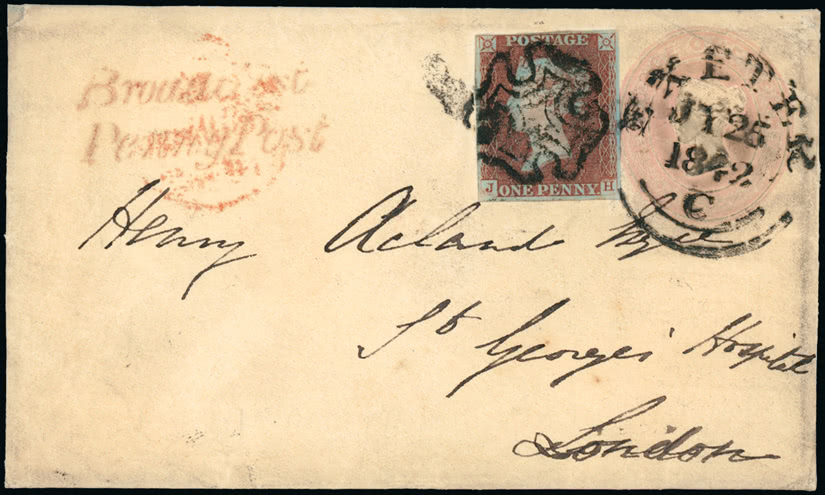 Broadclist
Penny Post
POSTAGE
J H
ONE PENNY
EXETER
JY 25
1842
C
Henry Acland
St Georges Hospital
London